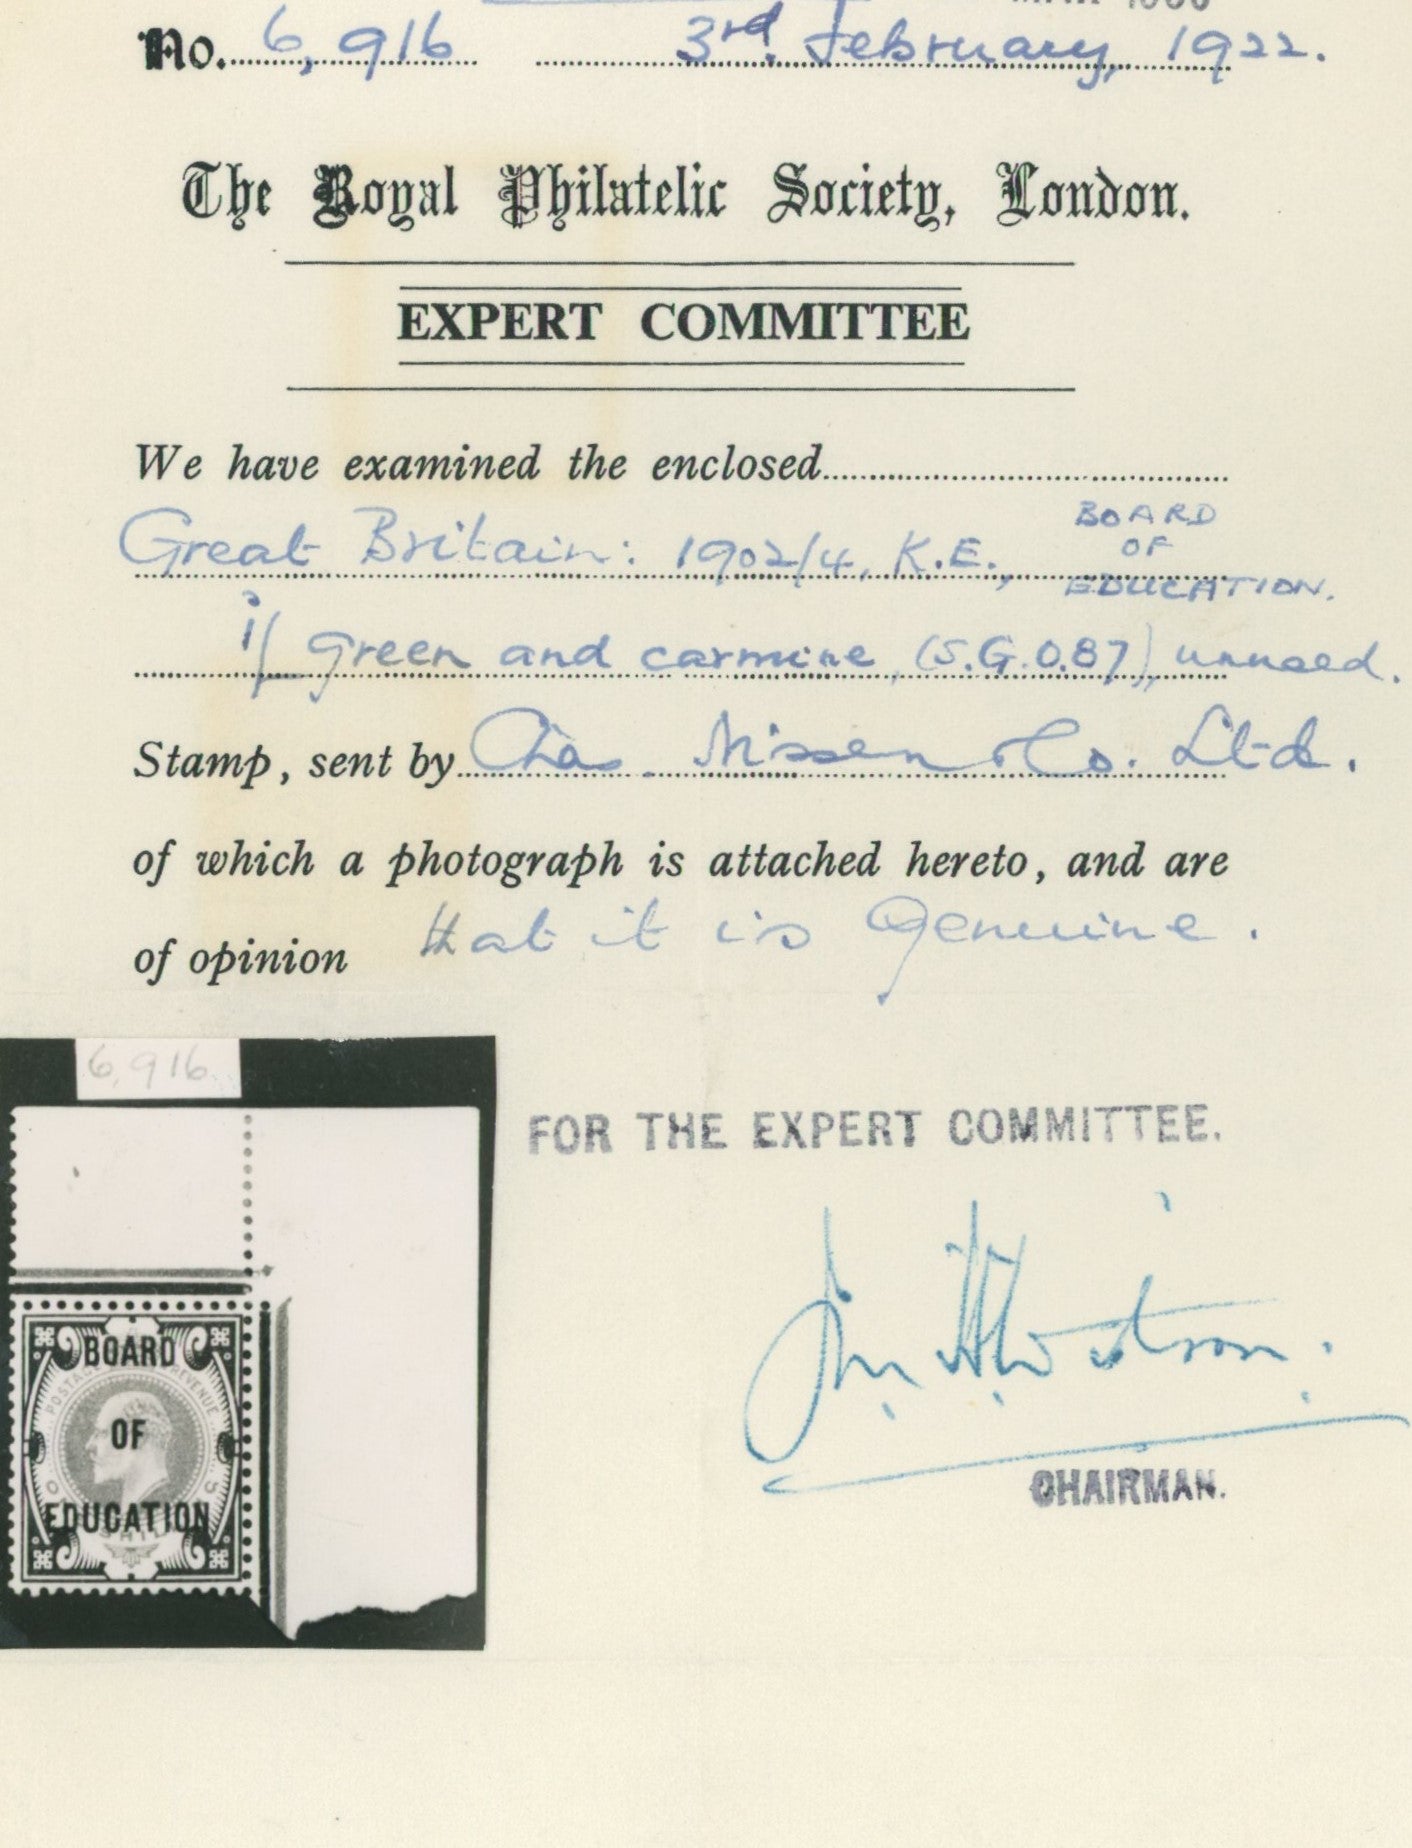 No. 6,916 3rd. February, 1922.
The Royal Philatelic Society, London.
EXPERT COMMITTEE
We have examined the enclosed
Great Britain: 1902/4, K.E., BOARD OF EDUCATION.
1/- green and carmine, (S.G.O.87), unused.
Stamp, sent by Chas. Nissen & Co. Ltd.
of which a photograph is attached hereto, and are
of opinion that it is Genuine.
6,916
FOR THE EXPERT COMMITTEE.
CHAIRMAN.
BOARD
POSTAGE REVENUE
OF
EDUCATION